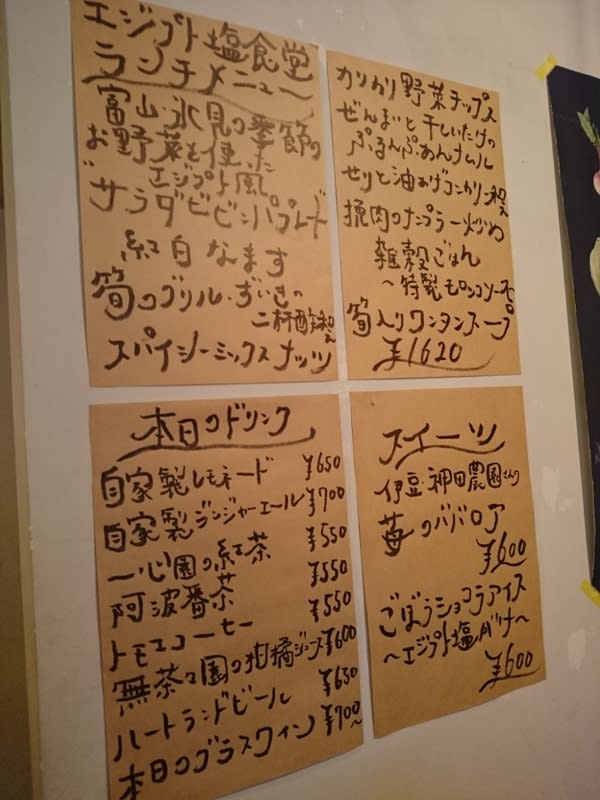 エジプト塩食堂
ランチメニュー
富山・氷見の季節の
お野菜を使った
エジプト風
サラダビビンバプレート
紅白なます
筍のグリル・ずいきの
二杯酢和え
スパイシーミックスナッツ
カリカリ野菜チップス
ぜんまいと干しいたけの
ぷるんぷあんナムル
せりと油あげコンカリ和え
挽肉のナンプラー炒め
雑穀ごはん
〜特製モロッコソース
筍入りワンタンスープ
¥1620
本日のドリンク
自家製レモネード ¥650
自家製ジンジャーエール ¥700
一心園の紅茶 ¥550
阿波番茶 ¥550
トモエコーヒー ¥550
無茶々園の柑橘ジュース ¥600
ハートランドビール ¥650
本日のグラスワイン ¥700〜
スイーツ
伊豆・神田農園さんの
苺のババロア
¥600
ごぼうショコラアイス
〜エジプト塩がけ〜
¥600